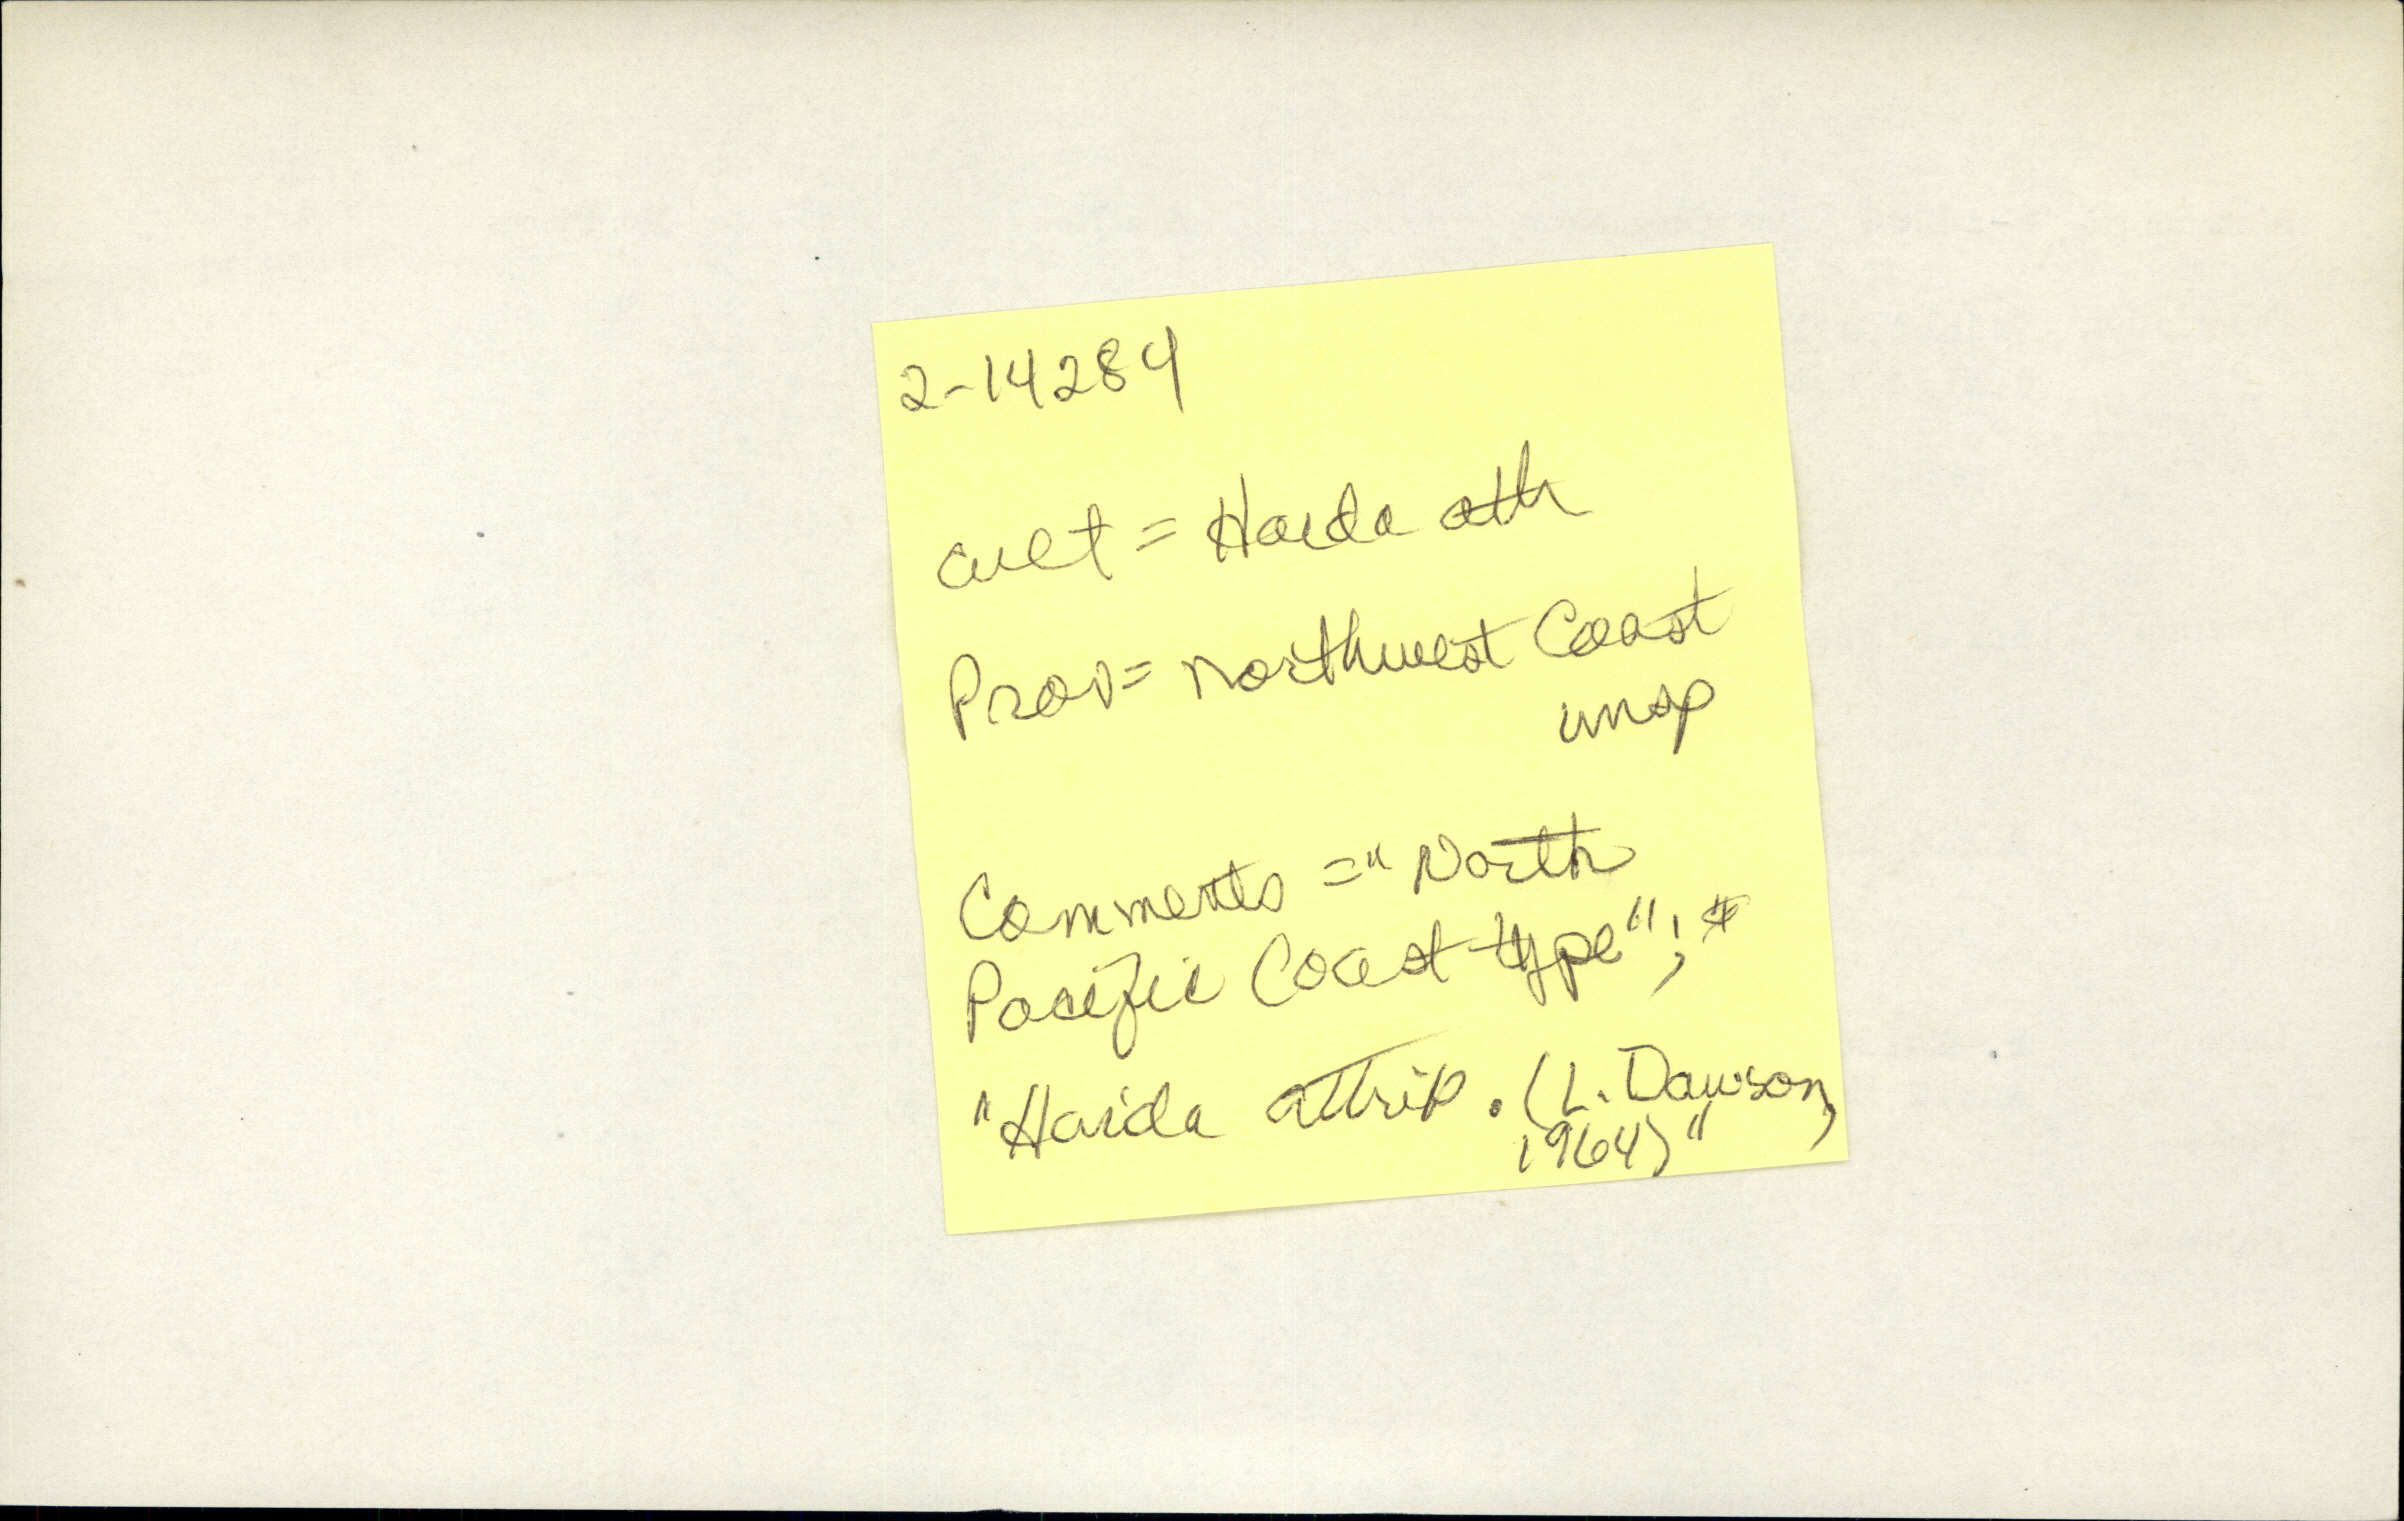 2-14284
cult = Haida att
Prov = Northwest Coast
unsp
Comments = "North
Pacific Coast type";
"Haida attrib. (L. Dawson,
1964)"